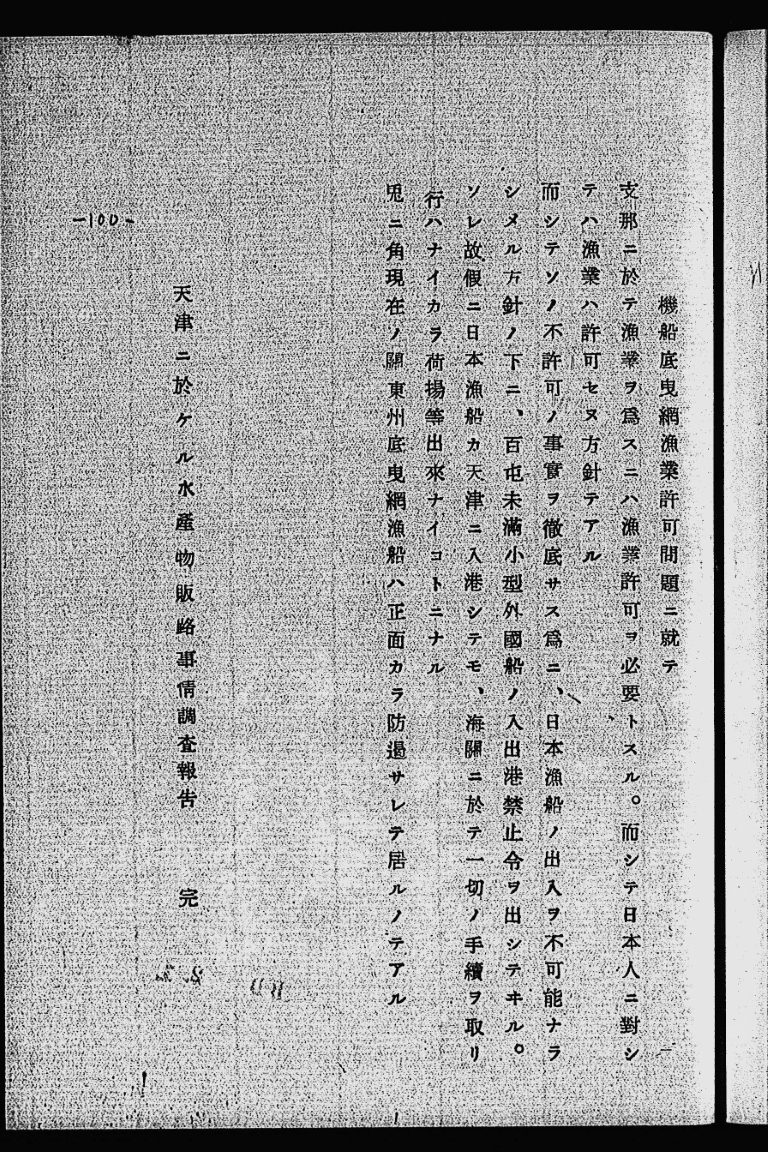 機船底曳網漁業許可問題ニ就テ
支那ニ於テ漁業ヲ爲スニハ漁業許可ヲ必要トスル。而シテ日本人ニ對シ
テハ漁業ハ許可セヌ方針テアル
而シテソノ不許可ノ事實ヲ徹底サス爲ニ、日本漁船ノ出入ヲ不可能ナラ
シメル方針ノ下ニ、百屯未滿小型外國船ノ入出港禁止令ヲ出シテヰル。
ソレ故假ニ日本漁船カ天津ニ入港シテモ、海關ニ於テ一切ノ手續ヲ取リ
行ハナイカラ荷揚等出來ナイコトニナル
兎ニ角現在ノ關東州底曳網漁船ハ正面カラ防遏サレテ居ルノテアル
天津ニ於ケル水產物販路事情調査報告 完
-100-